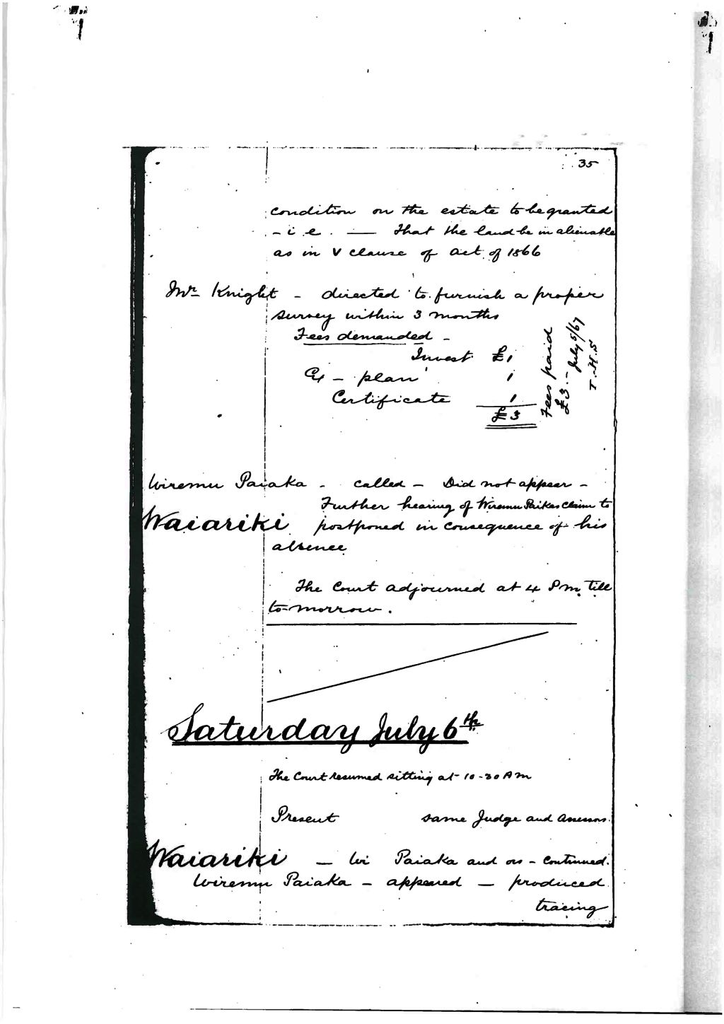 35
condition on the estate to be granted
- i.e. — That the land be inalienable
as in V clause of Act of 1866
Mr Knight - directed to furnish a proper
survey within 3 months
Fees demanded -
Invest £1
Ex - plan 1
Certificate 1
£3
Fees paid
£3 - July 5/67
T.H.S
Wiremu Paiaka - called - Did not appear -
Further hearing of Wiremu Paikas claim to
Waiariki postponed in consequence of his
absence
The Court adjourned at 4 P.m. till
to-morrow.
Saturday July 6th
The Court resumed sitting at 10-30 A m
Present same Judge and Assessors
Waiariki — Wi Paiaka and ors - continued.
Wiremu Paiaka - appeared - produced
tracing